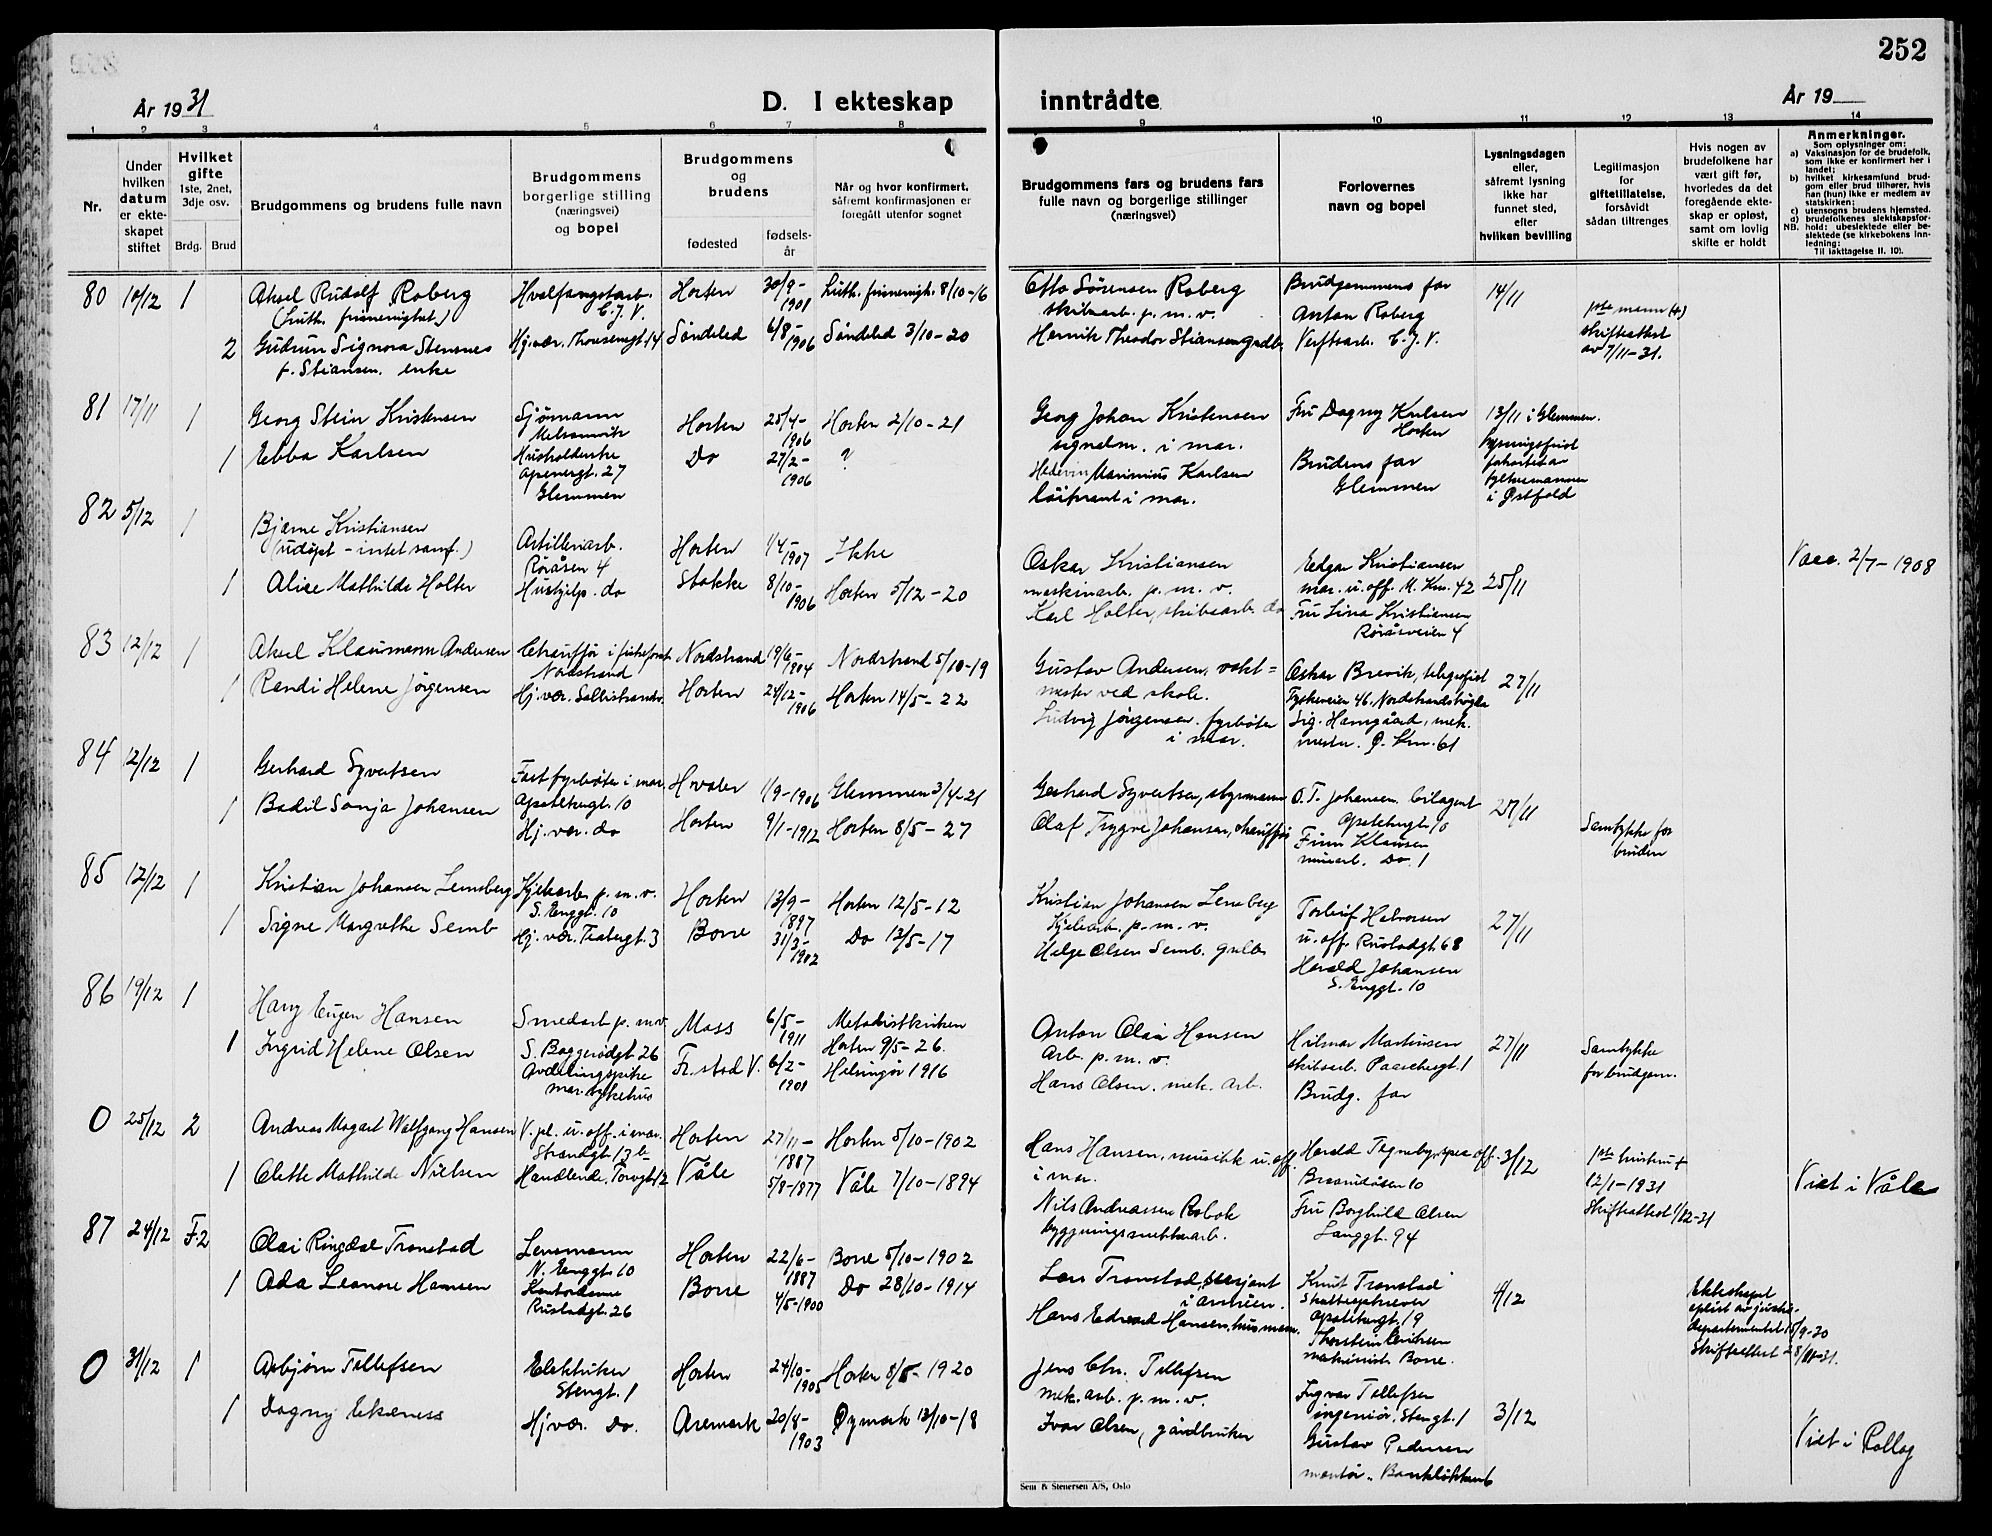 252
År 1931
D. I ekteskap
inntrådte
År 19
1 2 3 4 5 6 7 8 9 10 11 12 13 14
Nr.
Under
hvilken
datum
er ekte-
skapet
stiftet
Hvilket
gifte
1ste, 2net,
3dje osv.
Brdg. Brud
Brudgommens og brudens fulle navn
Brudgommens
borgerlige stilling
(næringsvei)
og bopel
Brudgommens
og
brudens
fødested
fødsels-
år
Når og hvor konfirmert,
såfremt konfirmasjonen er
foregått utenfor sognet
Brudgommens fars og brudens fars
fulle navn og borgerlige stillinger
(næringsvei)
Forlovernes
navn og bopel
Lysningsdagen
eller,
såfremt lysning
ikke har
funnet sted,
efter
hvilken bevilling
Legitimasjon
for
giftetillatelse,
forsåvidt
sådan tiltrenges
Hvis nogen av
brudefolkene har
vært gift før,
hvorledes da det
foregående ekte-
skap er opløst,
samt om lovlig
skifte er holdt
Anmerkninger.
Som oplysninger om:
a) Vaksinasjon for de brudefolk,
som ikke er konfirmert her i
landet;
b) hvilket kirkesamfund brud-
gom eller brud tilhører, hvis
han (hun) ikke er medlem av
statskirken;
c) utensogns brudens hjemsted.
d) brudefolkenes slektskapsfor-
NB. hold: ubeslektede eller be-
slektede (se kirkebokens inn-
ledning:
Til iakttagelse II. 10).
80 10/12 1 Aksel Rudolf Roberg Hvalfangstarb. Horten 30/9-1901 Luth. frimenigh. 8/10-16 Otto Sørensen Roberg Brudgommens far 14/11
(Luth. frimenighet) skibsarb. p.m.v. Anton Roberg 1ste mann (+)
2 Gudrun Signora Stensnes Hj. vær. Thouesengt. 14 Søndeled 6/8-1906 Søndeled 3/10-20 Henrik Theodor Stiansen gndbr. Verftsarb. C.J.V. skifteattest
f. Stiansen. enke av 7/11-31.
81 17/11 1 Georg Stein Kristensen Sjømann Horten 25/4-1906 Horten 2/10-21 Georg Johan Kristensen Fru Dagny Karlsen 13/11 i Glemmen.
signalm. i mar. Horten
1 Ebba Karlsen Husholderske Do 27/2-1906 ? Marinius Karlsen Brudens far
Glemmen løitnant i mar. Glemmen i Østfold
82 5/12 1 Bjarne Kristiansen Artilleriarb. Horten 1/4-1907 Ikke Oskar Kristiansen Edgar Kristiansen 25/11 Vacc. 2/7-1908
(udøpt - intet samf.) Røråsen 4 maskinarb. p.m.v. mar. u.off. M. Kas. 42
1 Alice Mathilde Holter Hushjelp. do Stokke 8/10-1906 Horten 5/12-20 Karl Holter, skibsarb. do Fru Lina Kristiansen
Røråsveien 4
83 12/12 1 Aksel Klausmann Andersen Nordstrand 19/6-1904 Nordstrand 5/10-19 Gustav Andersen, vakt= Oskar Brevik, telegrafist 27/11
Nordstrand mester ved skole.
1 Randi Helene Jørgensen Hj. vær. Horten 24/12-1906 Horten 14/5-22 Ludvig Jørgensen. fyrbøter
i mar.
84 12/12 1 Gerhard Syvertsen Fast fyrbøter i mar. Hvaler 1/9-1906 Glemmen 3/4-21 Gerhard Syvertsen, styrmann O.T. Johansen. bilagent 27/11
Apotekergt. 10
1 Bodil Sonja Johansen Hj. vær. do Horten 9/1-1912 Horten 8/5-27 Olaf Trygve Johansen, chauffør Finn Klausen Samtykke for
minearb. Do. 1 bruden
85 12/12 1 Kristian Johansen Lensberg Kjelearb. p.m.v. Horten 13/9-1897 Horten 12/5-12 Kristian Johansen Lensberg Torleif Halvorsen 27/11
S. Enggt. 10 Kjelearb. p.m.v. u.off. Rustadgt. 68
1 Signe Margrethe Semb Hj. vær. Borre 31/3-1902 Do 13/5-17 Helge Olsen Semb. Harald Johansen
S. Enggt. 10
86 19/12 1 Harry Eugen Hansen Smedarb. p.m.v. Moss 6/5-1911 Metodistkirken Anton Olai Hansen Hilmar Martinsen 27/11 Samtykke
Horten 9/5-26. Arb. p.m.v. for brudgom.
1 Ingrid Helene Olsen Avdelingspike Fr.stad V. 6/2-1901 Helsingør 1916 Hans Olsen. mek. arb. Brudg. far
mar. sykehus
0 25/12 2 Andreas Mozart Wolfgang Hansen V. pl. u.off. i mar. Horten 27/11-1887 Horten 5/10-1902 Hans Hansen, musikk u.off. 3/12 1ste hustru +
Strandgt. 13b i mar. 12/1-1931
1 Olette Mathilde Nielsen Handlende. Torvgt. 12 Våle 5/8-1877 Våle 7/10-1894 Nils Andreassen Fru Borghild Olsen Skifteattest 1/12-31 Viet i Våle
Langgt. 94
87 24/12 F.2 Olai Ringdal Tronstad Lensmann Horten 22/6-1887 Borre 5/10-1902 Lars Tronstad, sersjant Knut Tronstad 4/12 Ekteskapet
N. Enggt. 10 i armeen. Apotekergt. 19 opløst av justis-
1 Ada Leonore Hansen Kontordame Borre 4/5-1900 Do 28/10-1914 Hans Edvard Hansen, husmann. departementet 15/9-20
Rustadgt. 26 maskinist. Borre. Skifteattest 28/11-31.
0 31/12 1 Asbjørn Tellefsen Elektriker Horten 24/10-1905 Horten 8/5-1920 Jens Chr. Tellefsen Ingvar Tellefsen 3/12
Stengt. 1 mek. arb. p.m.v. ingeniør. Stengt. 1
1 Dagny Ekeness Hj vær. Do. Aremark 20/8-1903 Øymark 13/10-18 Ivar Olsen, gårdbruker Gustav Pedersen Viet i Rollag
montør.
Sem & Stenersen A/S, Oslo